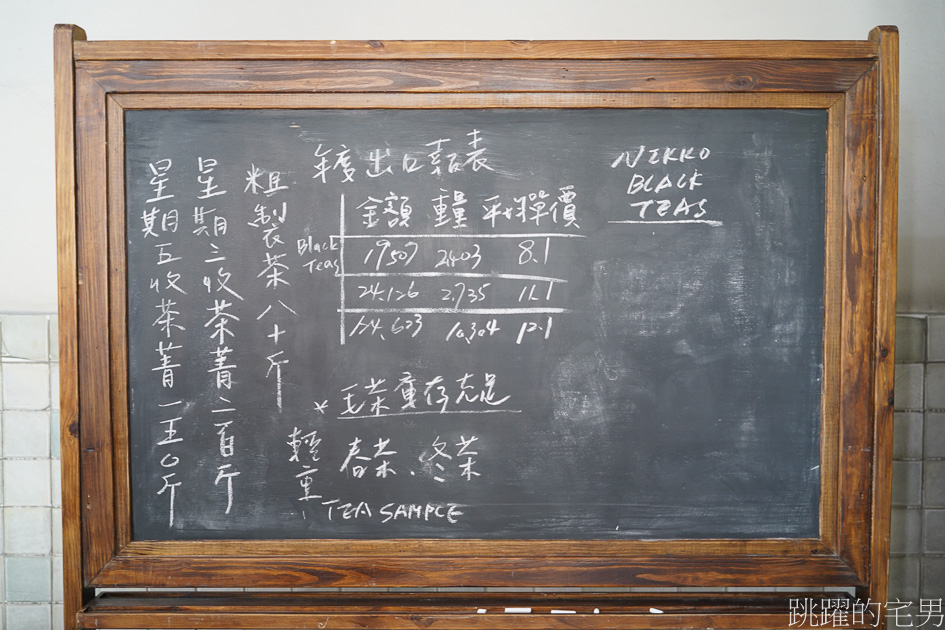 年度出口類表
金額 重量 平均單價
Black Teas 19507 2403 8.1
24,126 2,735 11.1
10,304 12.1
* 毛茶庫存充足
輕重 春茶、冬茶
TEA SAMPLE
NIKKO
BLACK
TEAS
粗製茶八十斤
星期三收茶菁二百斤
星期五收茶菁一五〇斤
跳躍的宅男